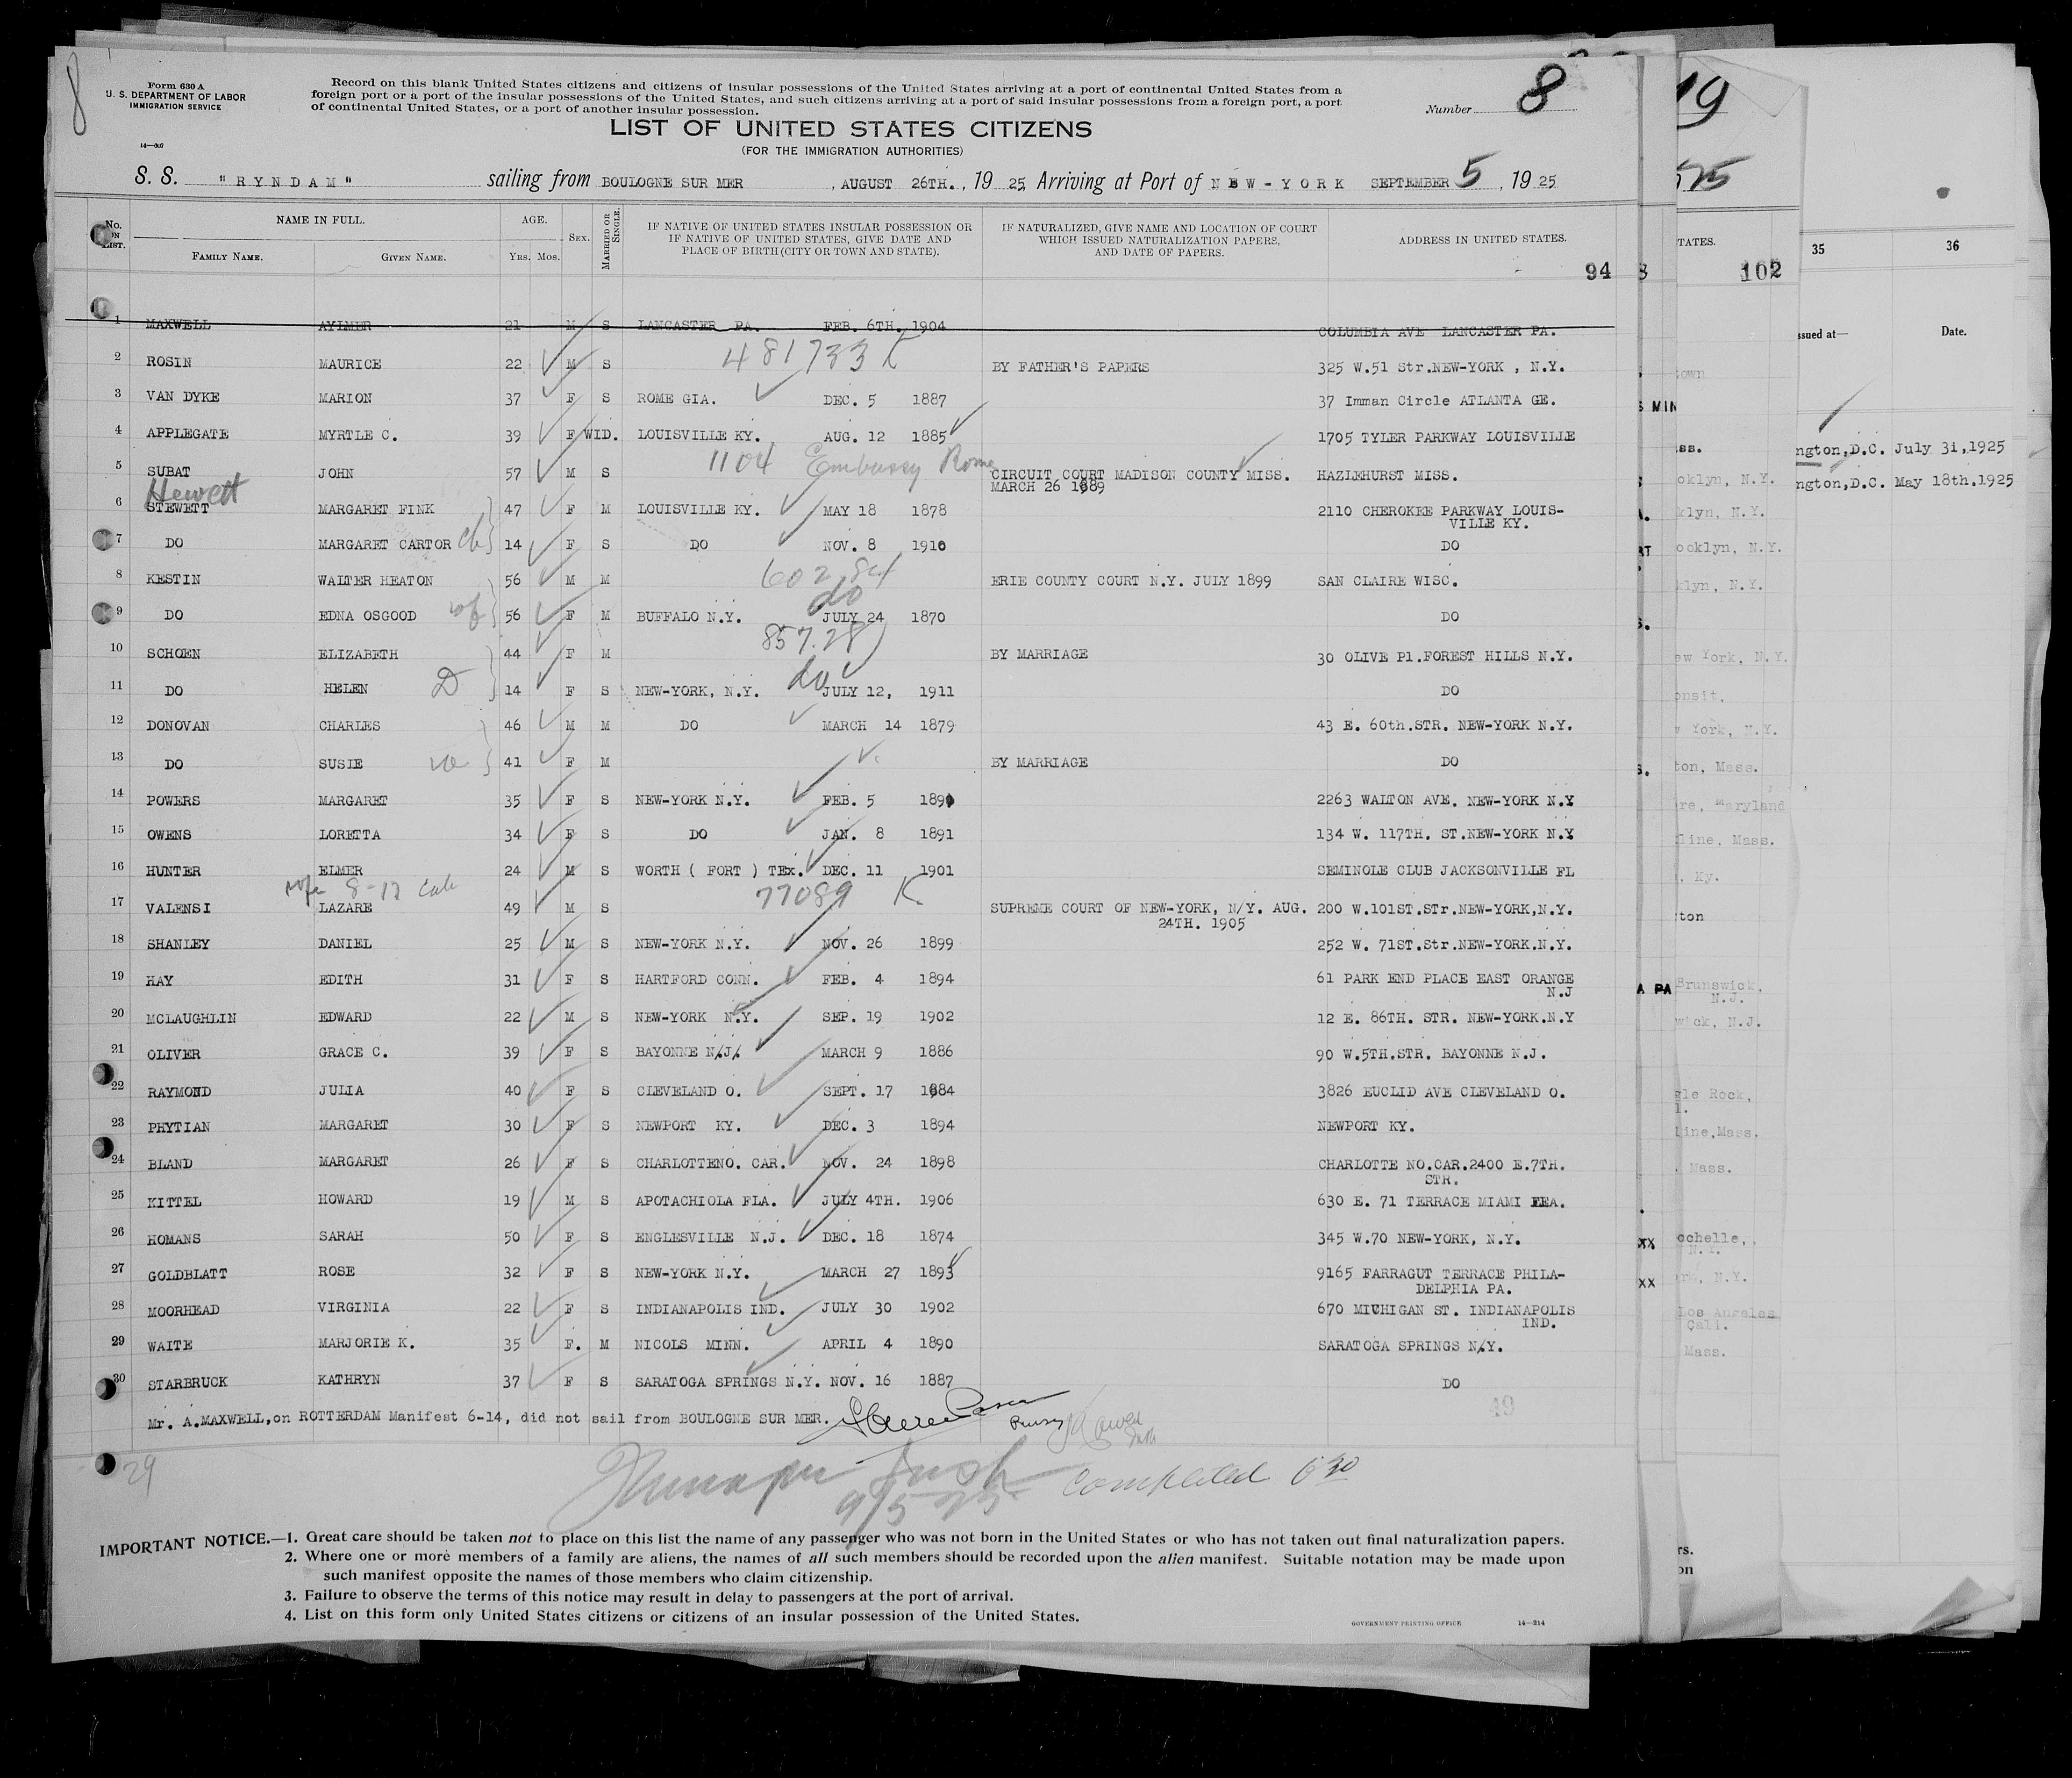 8
Form 630 A
U. S. DEPARTMENT OF LABOR
IMMIGRATION SERVICE
Record on this blank United States citizens and citizens of insular possessions of the United States arriving at a port of continental United States from a
foreign port or a port of the insular possessions of the United States, and such citizens arriving at a port of said insular possessions from a foreign port, a port
of continental United States, or a port of another insular possession.
Number 8
LIST OF UNITED STATES CITIZENS
(FOR THE IMMIGRATION AUTHORITIES)
S. S. "RYNDAM" sailing from BOULOGNE SUR MER, AUGUST 26TH., 1925, Arriving at Port of NEW-YORK SEPTEMBER 5, 1925
No. ON LIST. NAME IN FULL. AGE. SEX. MARRIED OR SINGLE. IF NATIVE OF UNITED STATES INSULAR POSSESSION OR IF NATIVE OF UNITED STATES, GIVE DATE AND PLACE OF BIRTH (CITY OR TOWN AND STATE). IF NATURALIZED, GIVE NAME AND LOCATION OF COURT WHICH ISSUED NATURALIZATION PAPERS, AND DATE OF PAPERS. ADDRESS IN UNITED STATES.
FAMILY NAME. GIVEN NAME. Yrs. Mos.
94
1 MAXWELL AYLMER 21 M S LANCASTER PA. FEB. 6TH. 1904 COLUMBIA AVE LANCASTER PA.
481733
2 ROSIN MAURICE 22 M S BY FATHER'S PAPERS 325 W.51 Str.NEW-YORK , N.Y.
3 VAN DYKE MARION 37 F S ROME GIA. DEC. 5 1887 37 Imman Circle ATLANTA GE.
4 APPLEGATE MYRTLE C. 39 F WID. LOUISVILLE KY. AUG. 12 1885 1705 TYLER PARKWAY LOUISVILLE
1104 Embassy Rome
5 SUBAT JOHN 57 M S CIRCUIT COURT MADISON COUNTY MISS. HAZLEHURST MISS.
MARCH 26 1889
Hewett
6 STEWETT MARGARET FINK 47 F M LOUISVILLE KY. MAY 18 1878 2110 CHEROKEE PARKWAY LOUIS-
VILLE KY.
7 DO MARGARET CARTOR ch 14 F S DO NOV. 8 1910 DO
602.84
8 KESTIN WALTER HEATON 56 M M ERIE COUNTY COURT N.Y. JULY 1899 SAN CLAIRE WISC.
do
9 DO EDNA OSGOOD wf 56 F M BUFFALO N.Y. JULY 24 1870 DO
857.28
10 SCHOEN ELIZABETH 44 F M BY MARRIAGE 30 OLIVE Pl.FOREST HILLS N.Y.
do
11 DO HELEN D 14 F S NEW-YORK, N.Y. JULY 12, 1911 DO
12 DONOVAN CHARLES 46 M M DO MARCH 14 1879 43 E. 60th.STR. NEW-YORK N.Y.
13 DO SUSIE 41 F M BY MARRIAGE DO
14 POWERS MARGARET 35 F S NEW-YORK N.Y. FEB. 5 2263 WALTON AVE. NEW-YORK N.Y
15 OWENS LORETTA 34 F S DO JAN. 8 1891 134 W. 117TH. ST.NEW-YORK N.Y
16 HUNTER ELMER 24 M S WORTH ( FORT ) TEx. DEC. 11 1901 SEMINOLE CLUB JACKSONVILLE FL
77089 K
17 VALENSI LAZARE 49 M S SUPREME COURT OF NEW-YORK, N/Y. AUG. 200 W.101ST.STr.NEW-YORK,N.Y.
24TH. 1905
18 SHANLEY DANIEL 25 M S NEW-YORK N.Y. NOV. 26 1899 252 W. 71ST.Str.NEW-YORK.N.Y.
19 HAY EDITH 31 F S HARTFORD CONN. FEB. 4 1894 61 PARK END PLACE EAST ORANGE
N.J
20 MCLAUGHLIN EDWARD 22 M S NEW-YORK N.Y. SEP. 19 1902 12 E. 86TH. STR. NEW-YORK.N.Y
21 OLIVER GRACE C. 39 F S BAYONNE N/J/. MARCH 9 1886 90 W.5TH.STR. BAYONNE N.J.
22 RAYMOND JULIA 40 F S CLEVELAND O. SEPT. 17 1884 3826 EUCLID AVE CLEVELAND O.
23 PHYTIAN MARGARET 30 F S NEWPORT KY. DEC. 3 1894 NEWPORT KY.
24 BLAND MARGARET 26 F S CHARLOTTENO. CAR. NOV. 24 1898 CHARLOTTE NO.CAR.2400 E.7TH.
STR.
25 KITTEL HOWARD 19 M S APOTACHIOLA FLA. JULY 4TH. 1906 630 E. 71 TERRACE MIAMI FEA.
26 HOMANS SARAH 50 F S ENGLESVILLE N.J. DEC. 18 1874 345 W.70 NEW-YORK, N.Y.
27 GOLDBLATT ROSE 32 F S NEW-YORK N.Y. MARCH 27 1893 9165 FARRAGUT TERRACE PHILA-
DELPHIA PA.
28 MOORHEAD VIRGINIA 22 F S INDIANAPOLIS IND. JULY 30 1902 670 MICHIGAN ST. INDIANAPOLIS
IND.
29 WAITE MARJORIE K. 35 F. M NICOLS MINN. APRIL 4 1890 SARATOGA SPRINGS N/Y.
30 STARBRUCK KATHRYN 37 F S SARATOGA SPRINGS N.Y. NOV. 16 1887 DO
Mr. A.MAXWELL,on ROTTERDAM Manifest 6-14, did not sail from BOULOGNE SUR MER.
49
29
9/5-25
completed 630
IMPORTANT NOTICE.—1. Great care should be taken not to place on this list the name of any passenger who was not born in the United States or who has not taken out final naturalization papers.
2. Where one or more members of a family are aliens, the names of all such members should be recorded upon the alien manifest. Suitable notation may be made upon
such manifest opposite the names of those members who claim citizenship.
3. Failure to observe the terms of this notice may result in delay to passengers at the port of arrival.
4. List on this form only United States citizens or citizens of an insular possession of the United States.
GOVERNMENT PRINTING OFFICE 14—214
19
TATES.
102
35 36
ssued at— Date.
ngton,D.C. July 31,1925
ngton,D.C. May 18th,1925
oklyn, N.Y.
klyn, N.Y.
ooklyn, N.Y.
klyn, N.Y.
ew York, N.Y.
onsit.
York, N.Y.
ton, Mass.
re, Maryland
line, Mass.
, Ky.
ton
Brunswick,
N.J.
wick, N.J.
gle Rock,
line,Mass.
Mass.
ochelle,
N.Y.
Los Angeles
Cali.
Mass.